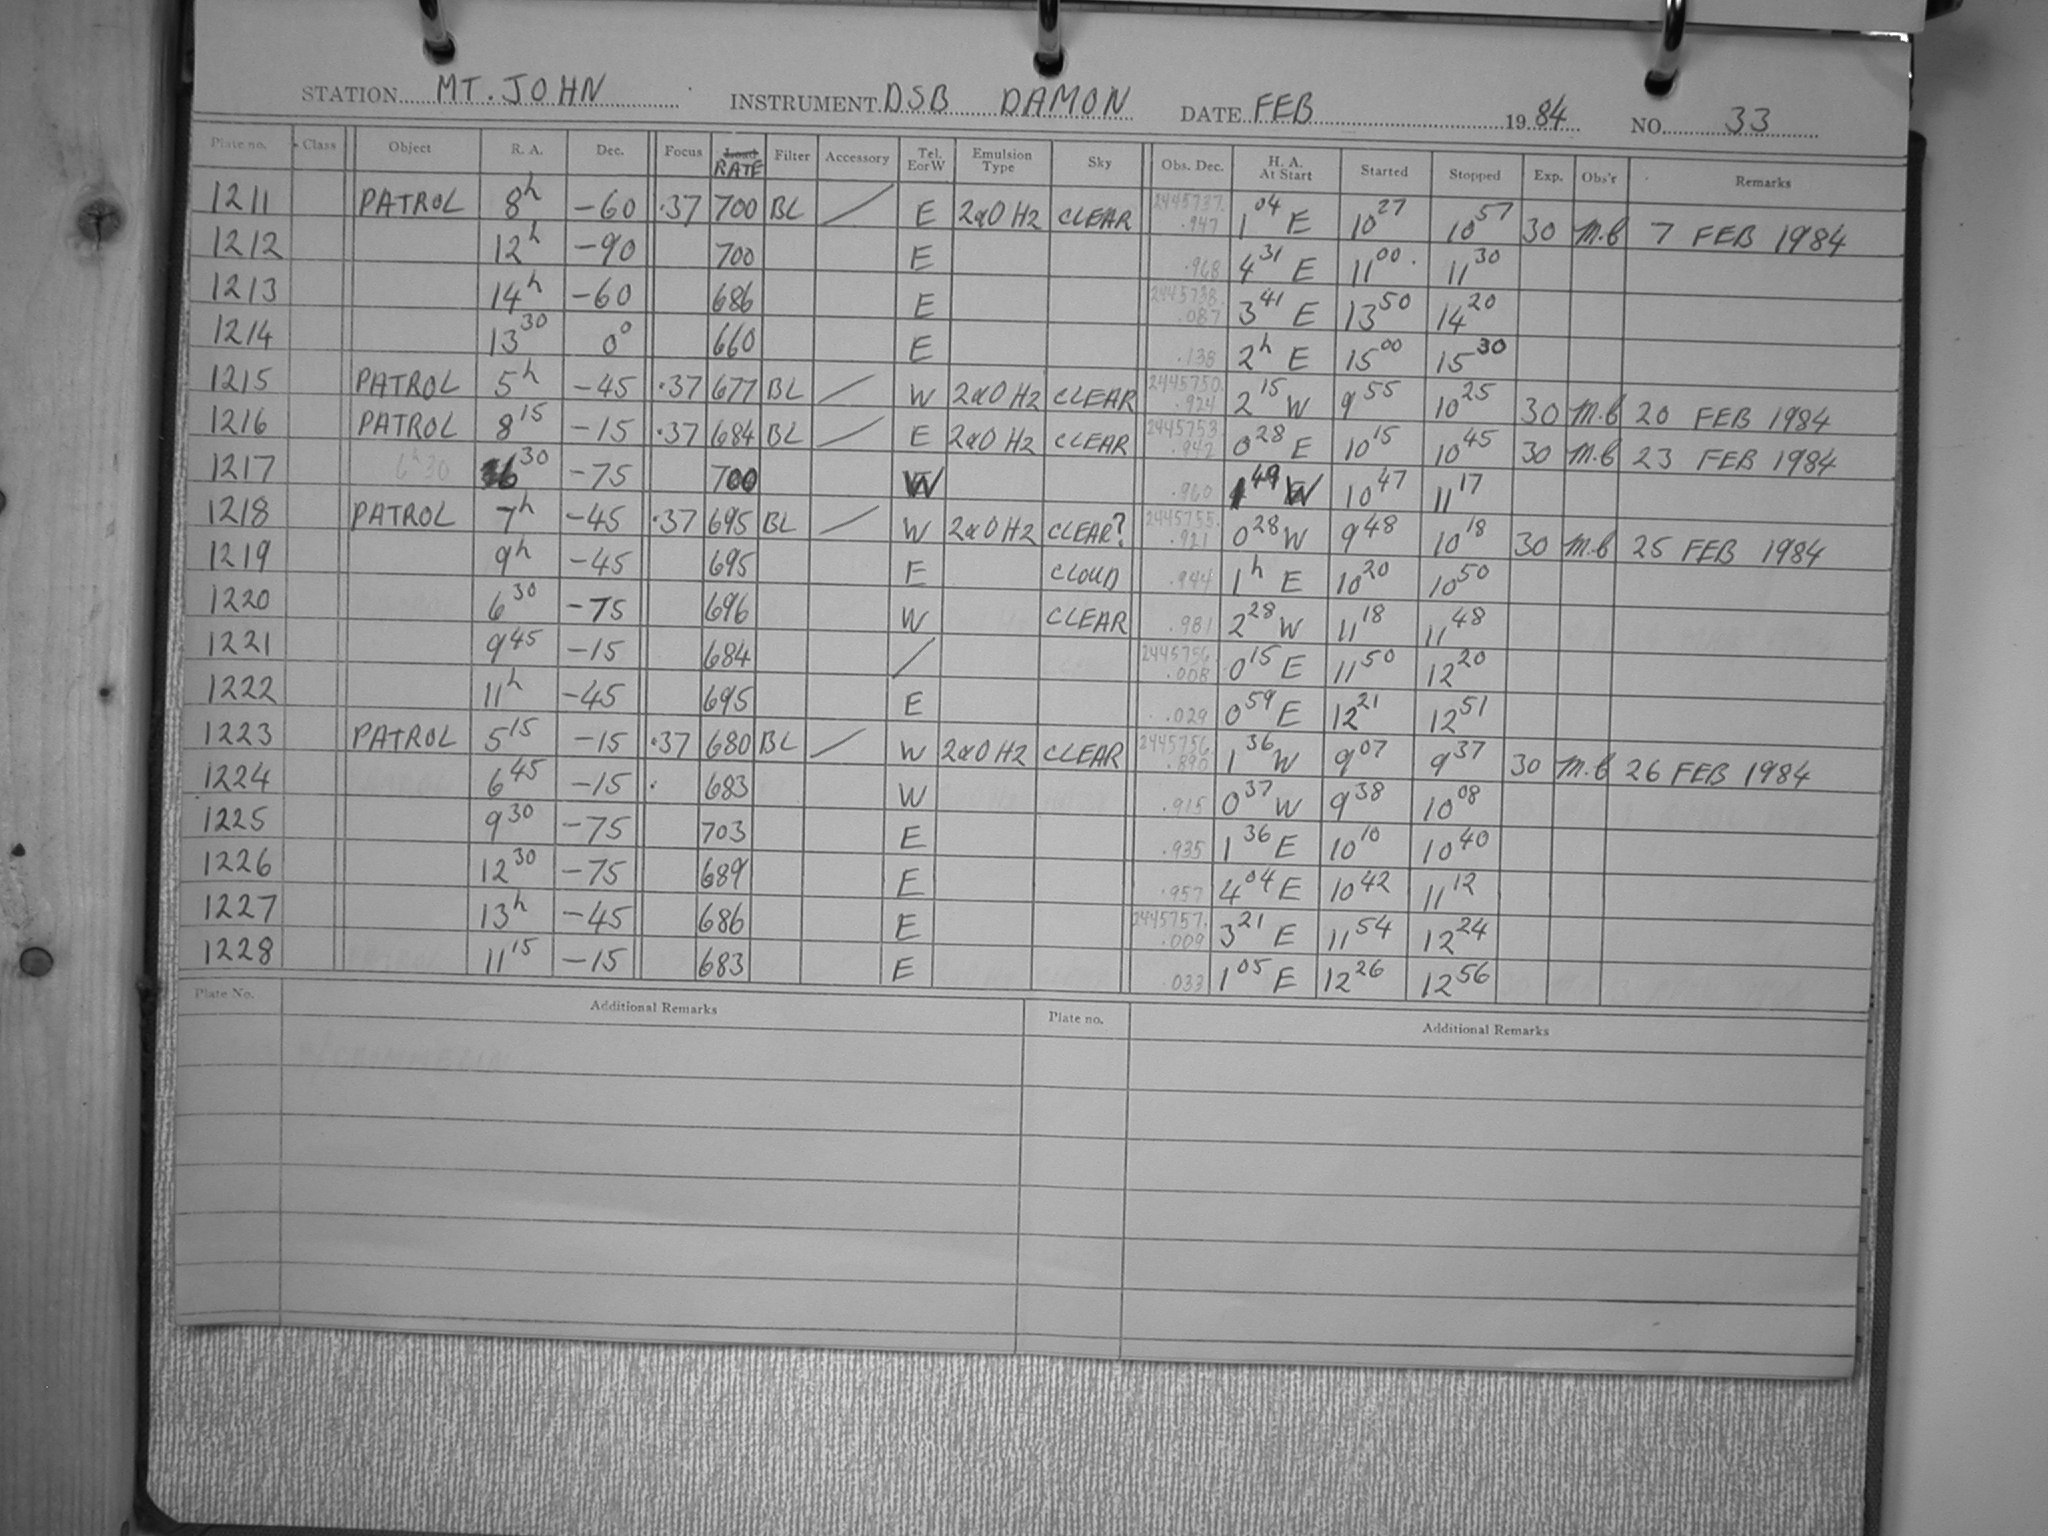 STATION MT. JOHN INSTRUMENT DSB DAMON DATE FEB 1984 NO. 33
Plate no. Class Object R. A. Dec. Focus Load RATE Filter Accessory Tel. E or W Emulsion Type Sky Obs. Dec. H. A. At Start Started Stopped Exp. Obs'r Remarks
1211 PATROL 8h -60 .37 700 BL / E 2aO H2 CLEAR 2445737.947 1 04 E 10 27 10 57 30 M.B 7 FEB 1984
1212 12h -90 700 E .968 4 31 E 11 00 11 30
1213 14h -60 686 E 2445738.087 3 41 E 13 50 14 20
1214 13 30 0° 660 E .138 2h E 15 00 15 30
1215 PATROL 5h -45 .37 677 BL / W 2aO H2 CLEAR 2445750.924 2 15 W 9 55 10 25 30 M.B 20 FEB 1984
1216 PATROL 8 15 -15 .37 684 BL / E 2aO H2 CLEAR 2445753.942 0 28 E 10 15 10 45 30 M.B 23 FEB 1984
1217 6h30 6 30 -75 700 W .960 1 49 W 10 47 11 17
1218 PATROL 7h -45 .37 695 BL / W 2aO H2 CLEAR? 2445755.921 0 28 W 9 48 10 18 30 M.B 25 FEB 1984
1219 9h -45 695 E CLOUD .944 1h E 10 20 10 50
1220 6 30 -75 696 W CLEAR .981 2 28 W 11 18 11 48
1221 9 45 -15 684 / 2445756.008 0 15 E 11 50 12 20
1222 11h -45 695 E .029 0 59 E 12 21 12 51
1223 PATROL 5 15 -15 .37 680 BL / W 2aO H2 CLEAR 2445756.890 1 36 W 9 07 9 37 30 M.B 26 FEB 1984
1224 6 45 -15 . 683 W .915 0 37 W 9 38 10 08
1225 9 30 -75 703 E .935 1 36 E 10 10 10 40
1226 12 30 -75 689 E .957 4 04 E 10 42 11 12
1227 13h -45 686 E 2445757.009 3 21 E 11 54 12 24
1228 11 15 -15 683 E .033 1 05 E 12 26 12 56
Plate No. Additional Remarks Plate no. Additional Remarks